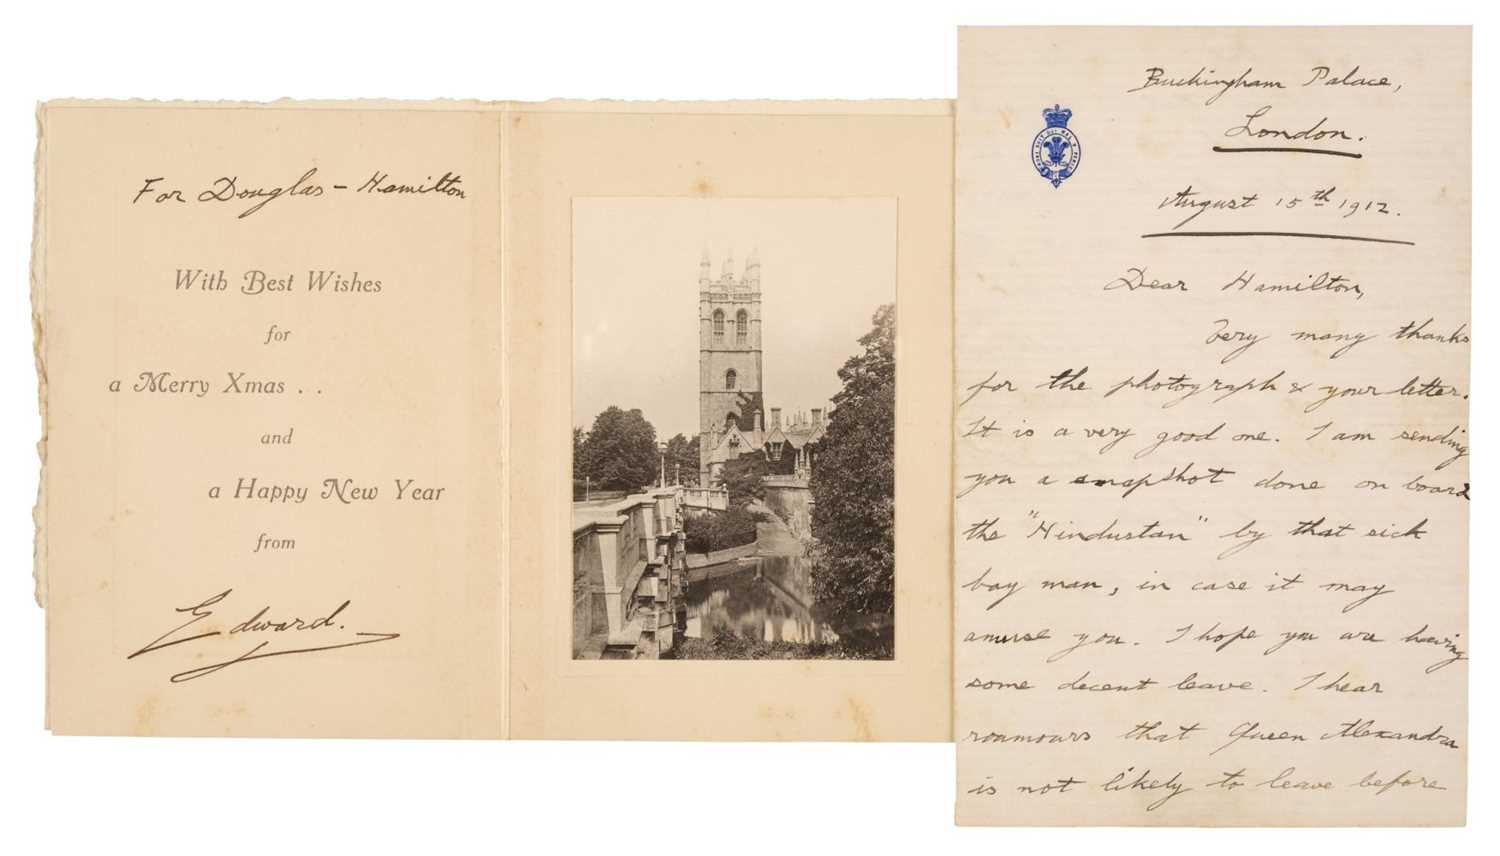 For Douglas - Hamilton
With Best Wishes
for
a Merry Xmas . .
and
a Happy New Year
from
Edward.
Buckingham Palace,
London.
August 15th 1912.
Dear Hamilton,
Very many thanks
for the photograph & your letter.
It is a very good one. I am sending
you a snapshot done on board
the "Hindustan" by that sick
bay man, in case it may
amuse you. I hope you are having
some decent leave. I hear
roumours that Queen Alexandra
is not likely to leave before